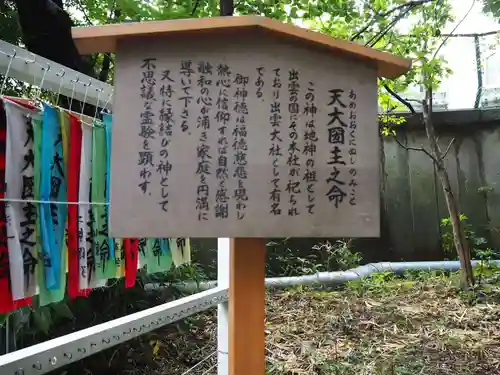 天大国主之命
あめおおくにぬしのみこと
この神は地神の祖として
出雲の国にその本社が祀られ
ており、出雲大社として有名
である。
御神徳は福徳慈悲を現わし
熱心に信仰すれば自然と感謝
融和の心が涌き家庭を円満に
導いて下さる。
又特に縁結びの神として
不思議な霊験を顕す。